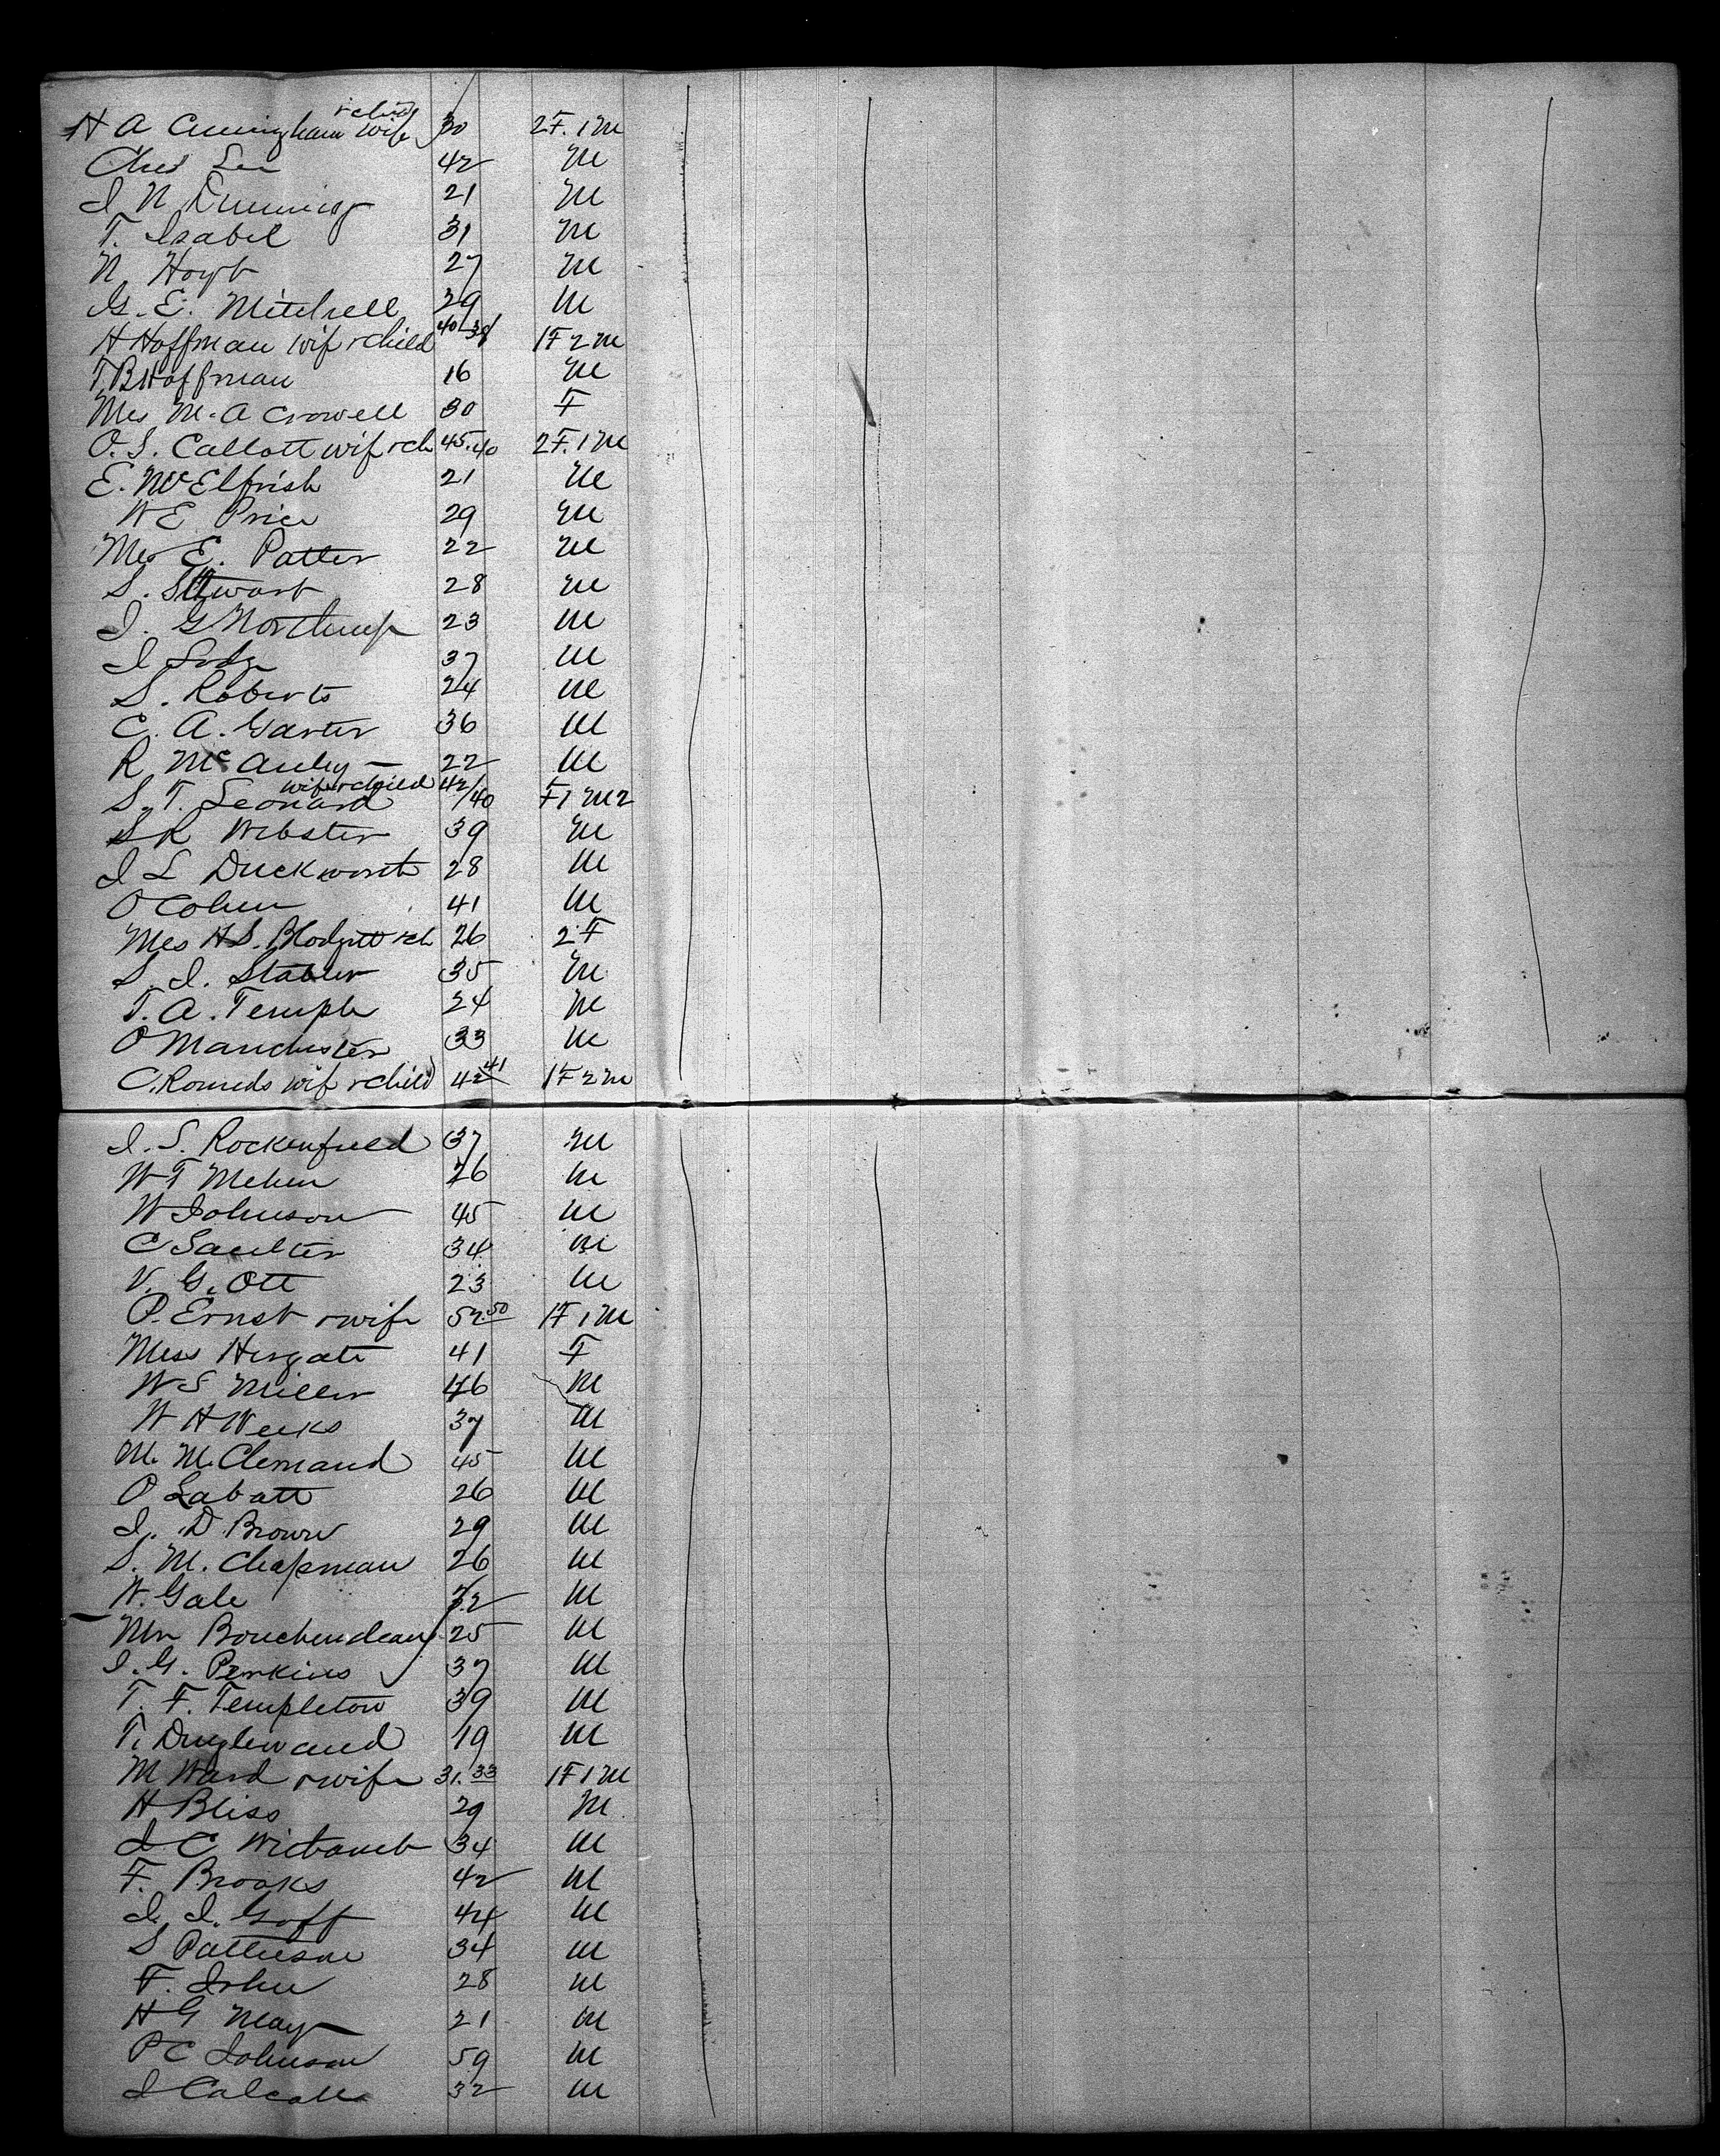 H A Cuningham wife & child 30 2F. 1M
Chas Lee 42 M
J N Dunning 21 M
T. Isabel 31 M
N. Hoyt 27 M
G. E. Mitchell 29 M
H Hoffman wif & child 40-38 1F 2M
T. B Hoffman 16 M
Mrs M. A Crowell 30 F
O. S. Callott wif & ch 45.40 2F. 1M
E. McElfrish 21 M
W E Price 29 M
Mrs E. Patter 22 M
S. Stewart 28 M
J. G Northrup 23 M
J 37 M
S. Roberts 24 M
C. A. Garter 36 M
R McAuley 22 M
S. T. Leonard wife & child 42/40 F1 M2
S R Webster 39 M
J L Duckworth 28 M
O Cohen 41 M
Mrs H S. Blodgett & ch 26 2F
S. J. Stabler 35 M
T. A. Temple 24 M
O Manchester 33 M
C. Rounds wif & child 42 41 1F 2M
J. S. Rockenfield 37 M
W T 26 M
W Johnson 45 M
C Saulter 34 M
V. G. Ott 23 M
P. Ernst & wife 52 50 1F 1M
Miss Hergate 41 F
W S Miller 46 M
W H Weeks 37 M
M. McClernand 45 M
P Labatt 26 M
J. D Brown 29 M
S. M. Chapman 26 M
W. Gale 32 M
Mr 25 M
J. G. Perkins 37 M
T. F. Templeton 39 M
T. 19 M
M Ward & wife 31. 33 1F 1M
H Bliss 29 M
J C 34 M
F. Brooks 42 M
J. J. Goff 44 M
S Patterson 34 M
F. John 28 M
H G May 21 M
P C Johnson 59 M
J 32 M